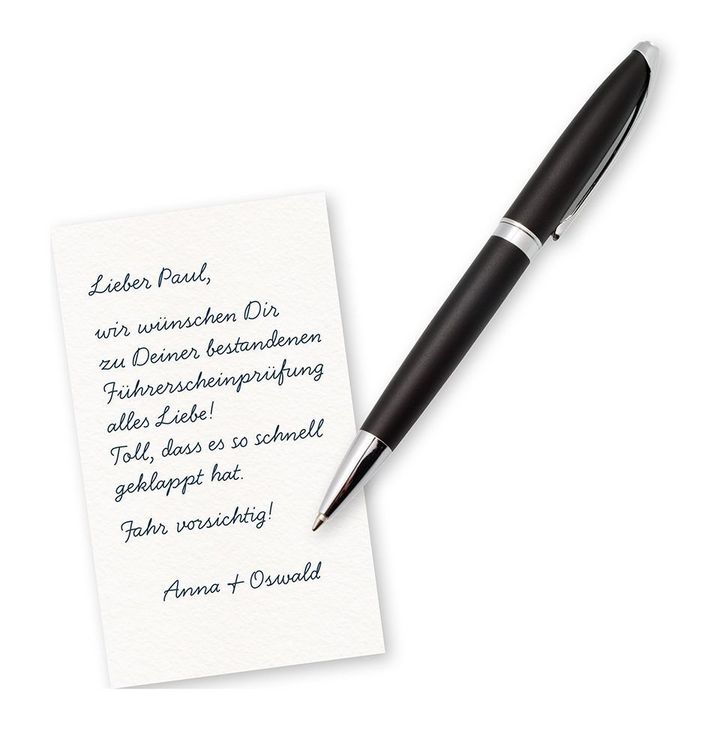 Lieber Paul,
wir wünschen Dir
zu Deiner bestandenen
Führerscheinprüfung
alles Liebe!
Toll, dass es so schnell
geklappt hat.
Fahr vorsichtig!
Anna + Oswald